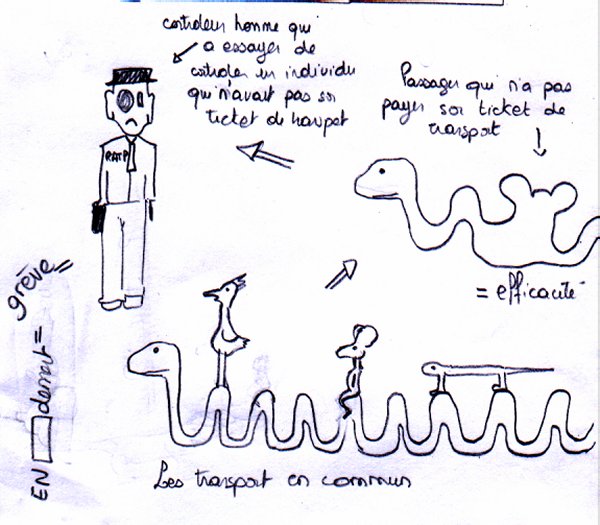 controleur homme qui
a essayer de
controler un individu
qui n'avait pas son
ticket de
Passager qui n'a pas
payer son ticket de
transport
RATP
= efficacité
grève =
EN demat =
Les transport en commun